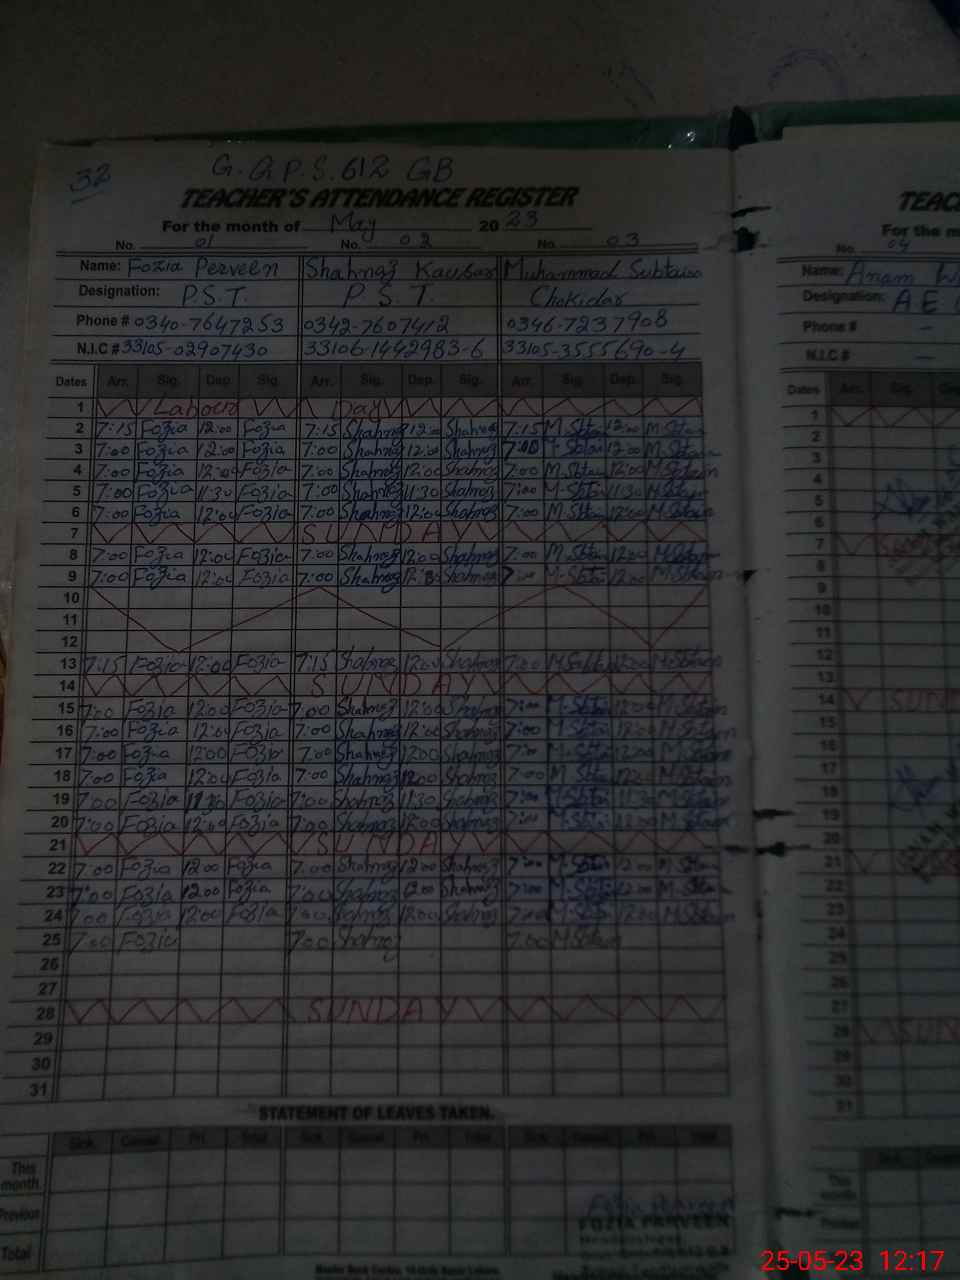 32
G.G.P.S. 612 GB
TEACHER'S ATTENDANCE REGISTER
For the month of May 2023
No. 01 No. 02 No. 03
Name: Fozia Perveen Shahnaz Kausar Muhammad Subtain
Designation: P.S.T. P.S.T. Chokidar
Phone # 0340-7647253 0342-7607412 0346-7237908
N.I.C # 33105-02907430 33106-1442983-6 33105-3555690-4
Dates Arr. Sig. Dep. Sig. Arr. Sig. Dep. Sig. Arr. Sig. Dep. Sig.
1 Labour Day
2 7:15 Fozia 12:00 Fozia 7:15 Shahnaz 12:00 Shahnaz 7:15 M.Sbtain 12:00 M.Sbtain
3 7:00 Fozia 12:00 Fozia 7:00 Shahnaz 12:00 Shahnaz 7:00 M.Sbtain 12:00 M.Sbtain
4 7:00 Fozia 12:00 Fozia 7:00 Shahnaz 12:00 Shahnaz 7:00 M.Sbtain 12:00 M.Sbtain
5 7:00 Fozia 11:30 Fozia 7:00 Shahnaz 11:30 Shahnaz 7:00 M.Sbtain 11:30 M.Sbtain
6 7:00 Fozia 12:00 Fozia 7:00 Shahnaz 12:00 Shahnaz 7:00 M.Sbtain 12:00 M.Sbtain
7 SUNDAY
8 7:00 Fozia 12:00 Fozia 7:00 Shahnaz 12:00 Shahnaz 7:00 M.Sbtain 12:00 M.Sbtain
9 7:00 Fozia 12:00 Fozia 7:00 Shahnaz 12:00 Shahnaz 7:00 M.Sbtain 12:00 M.Sbtain
10
11
12
13 7:15 Fozia 12:00 Fozia 7:15 Shahnaz 12:00 Shahnaz 7:00 M.Sbtain 12:00 M.Sbtain
14 SUNDAY
15 7:00 Fozia 12:00 Fozia 7:00 Shahnaz 12:00 Shahnaz 7:00 M.Sbtain 12:00 M.Sbtain
16 7:00 Fozia 12:00 Fozia 7:00 Shahnaz 12:00 Shahnaz 7:00 M.Sbtain 12:00 M.Sbtain
17 7:00 Fozia 12:00 Fozia 7:00 Shahnaz 12:00 Shahnaz 7:00 M.Sbtain 12:00 M.Sbtain
18 7:00 Fozia 12:00 Fozia 7:00 Shahnaz 12:00 Shahnaz 7:00 M.Sbtain 12:00 M.Sbtain
19 7:00 Fozia 11:30 Fozia 7:00 Shahnaz 11:30 Shahnaz 7:00 M.Sbtain 11:30 M.Sbtain
20 7:00 Fozia 12:00 Fozia 7:00 Shahnaz 12:00 Shahnaz 7:00 M.Sbtain 12:00 M.Sbtain
21 SUNDAY
22 7:00 Fozia 12:00 Fozia 7:00 Shahnaz 12:00 Shahnaz 7:00 M.Sbtain 12:00 M.Sbtain
23 7:00 Fozia 12:00 Fozia 7:00 Shahnaz 12:00 Shahnaz 7:00 M.Sbtain 12:00 M.Sbtain
24 7:00 Fozia 12:00 Fozia 7:00 Shahnaz 12:00 Shahnaz 7:00 M.Sbtain 12:00 M.Sbtain
25 7:00 Fozia 7:00 Shahnaz 7:00 M.Sbtain
26
27
28 SUNDAY
29
30
31
STATEMENT OF LEAVES TAKEN.
Sick Casual Pri. Total Sick Casual Pri. Total Sick Casual Pri. Total
This month
Previous
Total
Fozia Parveen
FOZIA PARVEEN
TEAC
For the m
No. 04
Name: Anam
Designation: A E
Phone # -
N.I.C # -
Dates Arr. Sig.
1
2
3
4
5
6
7
8
9
10
11
12
13
14 SUN
15
16
17
18
19
20
21
22
23
24
25
26
27
28 SUN
29
30
31
This month
Previous
Total
25-05-23 12:17